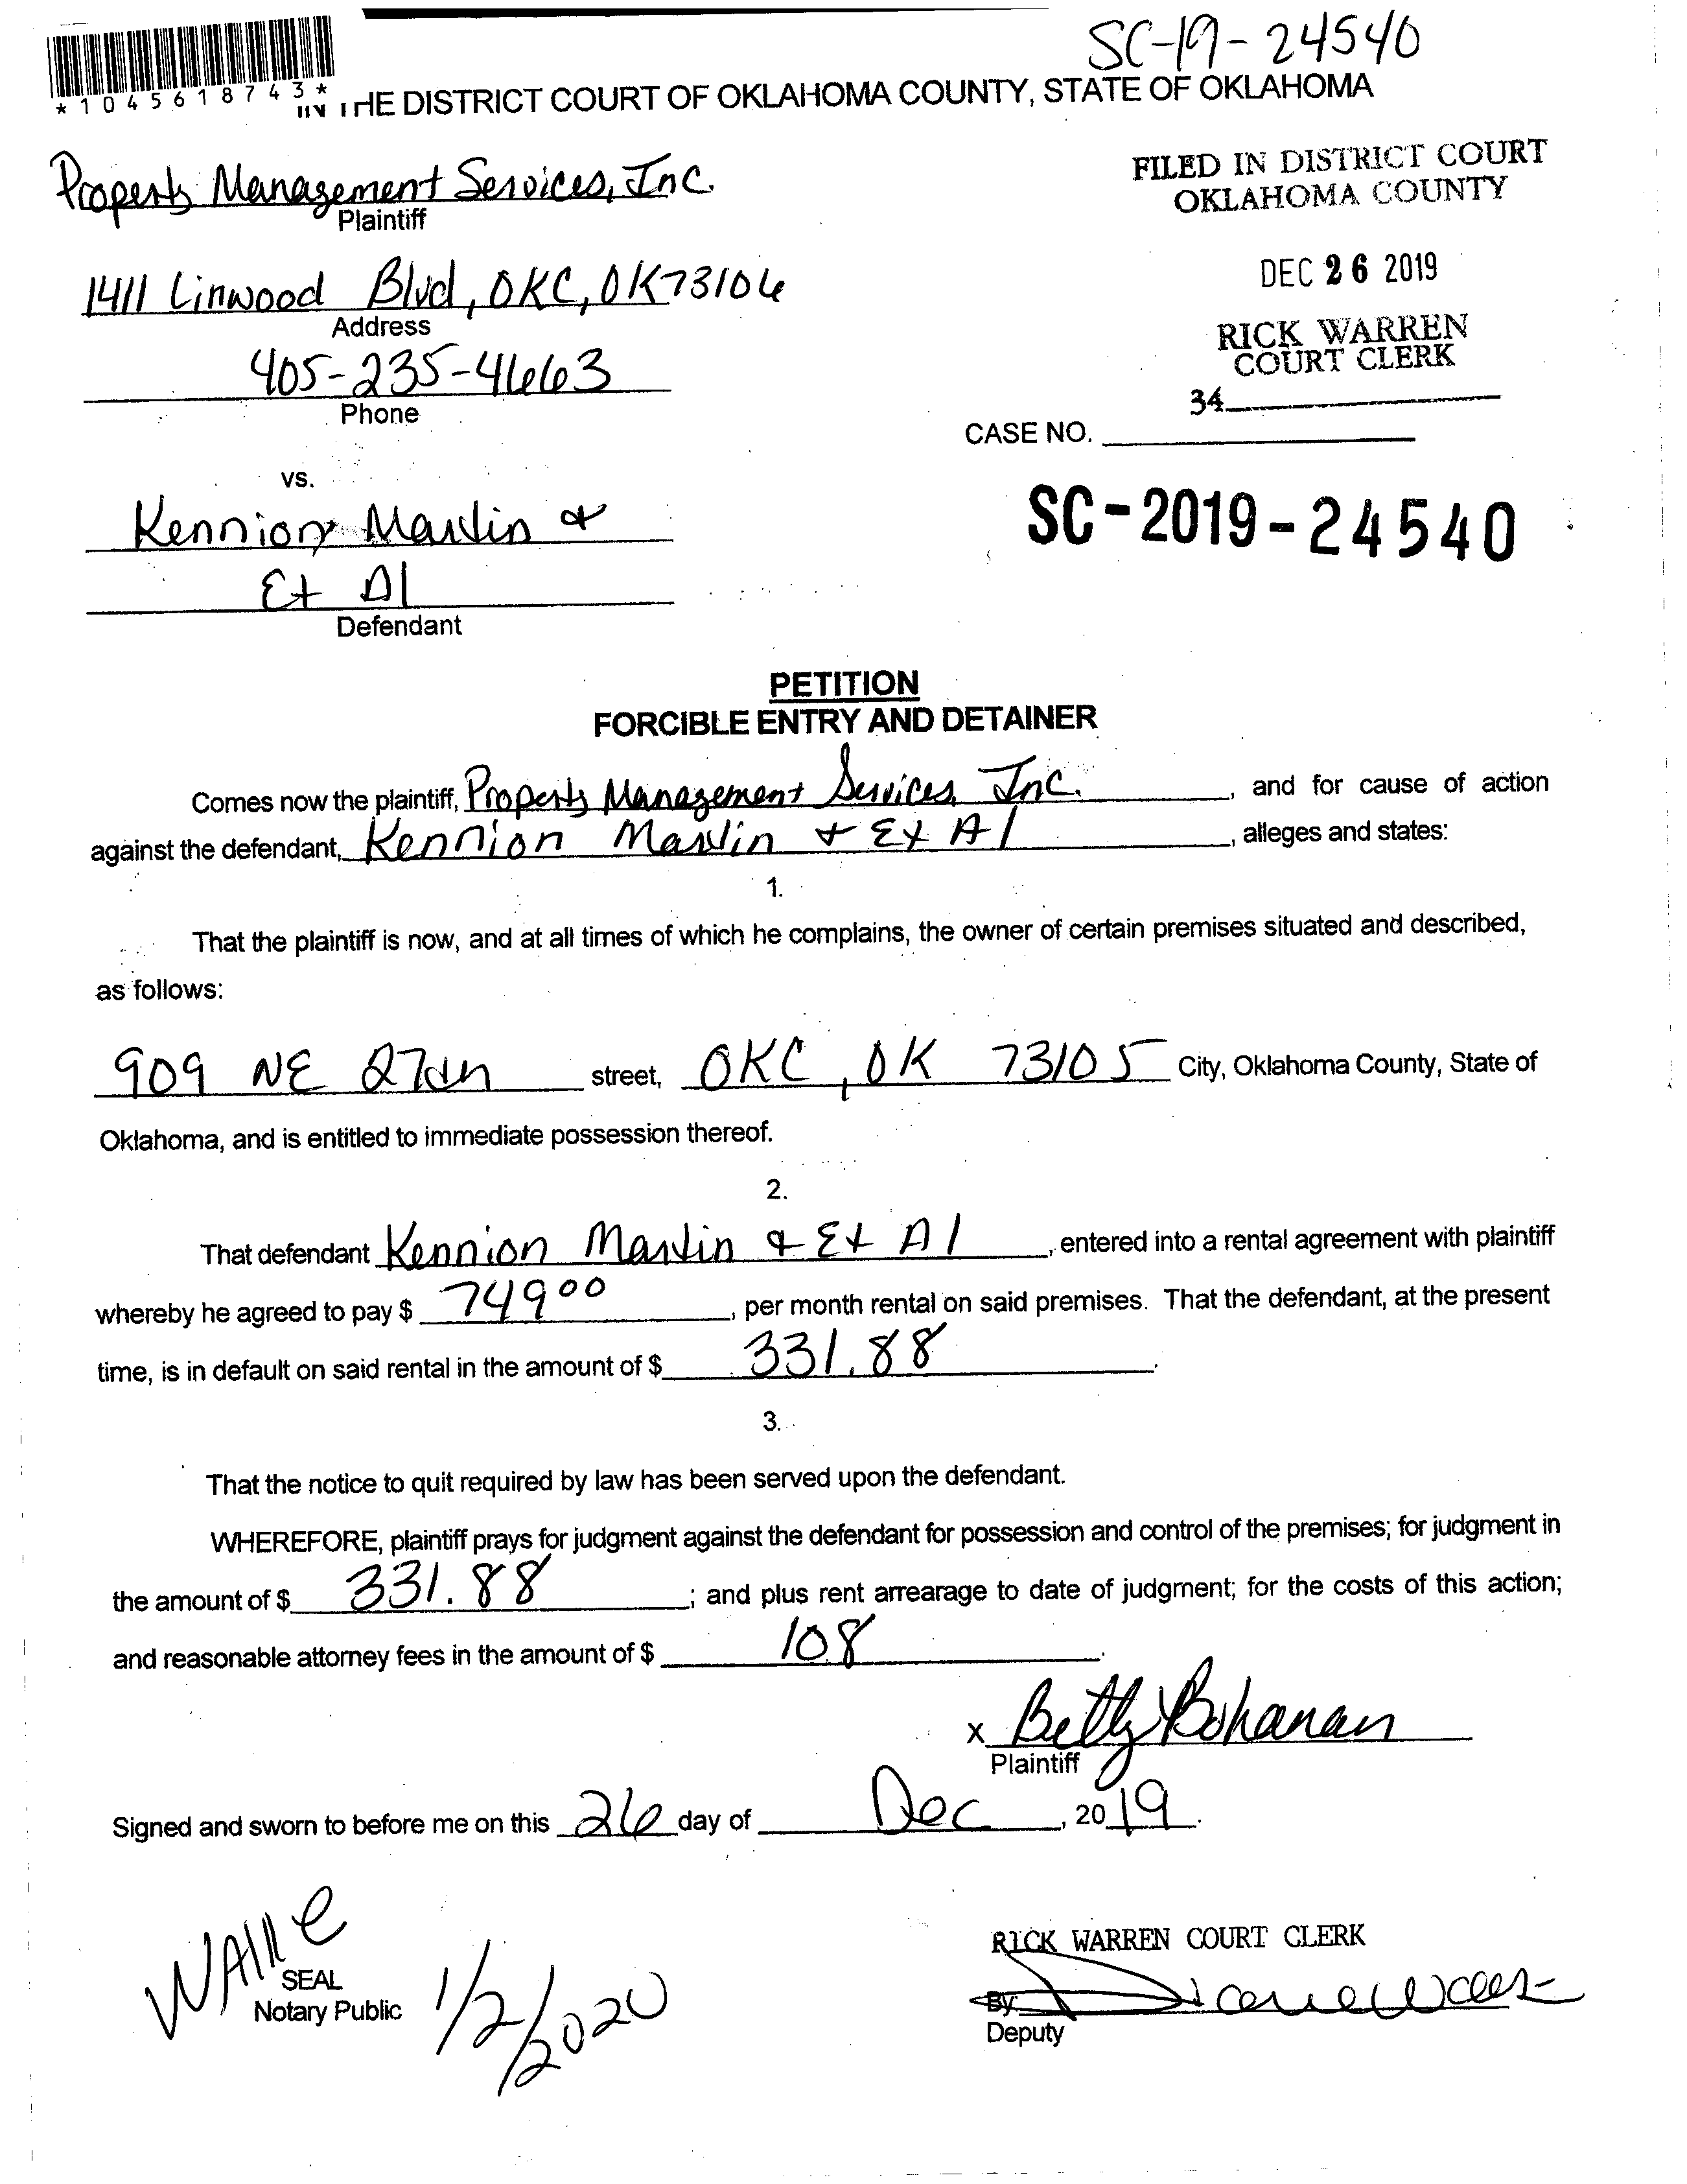 SC-19-24540
*1045618743*
IN THE DISTRICT COURT OF OKLAHOMA COUNTY, STATE OF OKLAHOMA
Property Management Services, Inc.
Plaintiff
FILED IN DISTRICT COURT
OKLAHOMA COUNTY
1411 Linwood Blvd, OKC, OK 73106
Address
DEC 26 2019
405-235-4663
Phone
RICK WARREN
COURT CLERK
34
CASE NO.
vs.
Kennion Martin &
Et Al
Defendant
SC-2019-24540
PETITION
FORCIBLE ENTRY AND DETAINER
Comes now the plaintiff, Property Management Services, Inc. , and for cause of action
against the defendant, Kennion Martin & Et Al , alleges and states:
1.
That the plaintiff is now, and at all times of which he complains, the owner of certain premises situated and described,
as follows:
909 NE 27th street, OKC, OK 73105 City, Oklahoma County, State of
Oklahoma, and is entitled to immediate possession thereof.
2.
That defendant Kennion Martin & Et Al , entered into a rental agreement with plaintiff
whereby he agreed to pay $ 749 00 , per month rental on said premises. That the defendant, at the present
time, is in default on said rental in the amount of $ 331.88 .
3.
That the notice to quit required by law has been served upon the defendant.
WHEREFORE, plaintiff prays for judgment against the defendant for possession and control of the premises; for judgment in
the amount of $ 331.88 ; and plus rent arrearage to date of judgment; for the costs of this action;
and reasonable attorney fees in the amount of $ 108 .
x Betty Bohanan
Plaintiff
Signed and sworn to before me on this 26 day of Dec , 2019 .
SEAL
Notary Public
1/2/2020
RICK WARREN COURT CLERK
By
Deputy